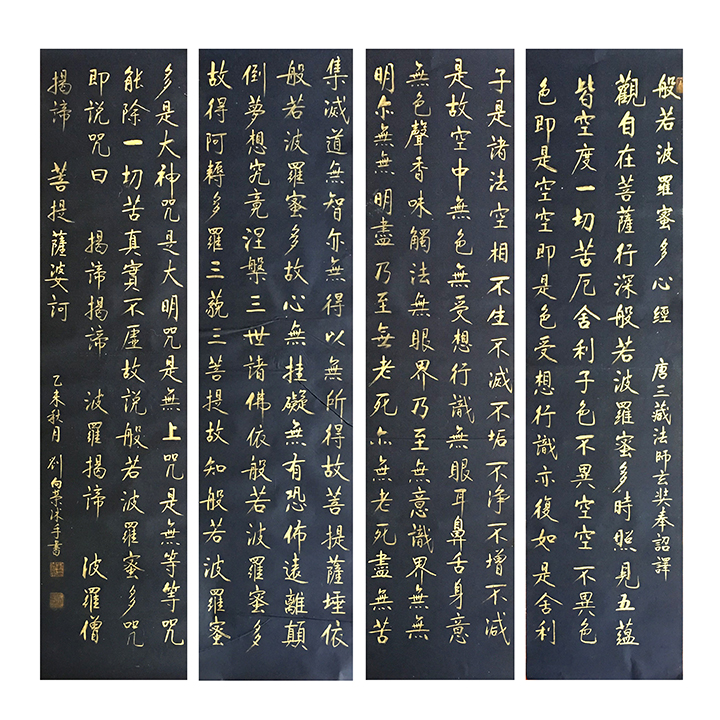 般若波羅蜜多心經 唐三藏法師玄奘奉詔譯
觀自在菩薩行深般若波羅蜜多時照見五蘊
皆空度一切苦厄舍利子色不異空空不異色
色即是空空即是色受想行識亦復如是舍利
子是諸法空相不生不滅不垢不淨不增不減
是故空中無色無受想行識無眼耳鼻舌身意
無色聲香味觸法無眼界乃至無意識界無無
明尒無無明盡乃至無老死尒無老死盡無苦
集滅道無智尒無得以無所得故菩提薩埵依
般若波羅蜜多故心無挂礙無有恐佈遠離顛
倒夢想究竟涅槃三世諸佛依般若波羅蜜多
故得阿耨多羅三藐三菩提故知般若波羅蜜
多是大神咒是大明咒是無上咒是無等等咒
能除一切苦真實不虛故説般若波羅蜜多咒
即説咒曰 揭諦揭諦 波羅揭諦 波羅僧
揭諦 菩提薩婆訶
乙未秋月 刘向荣沐手書